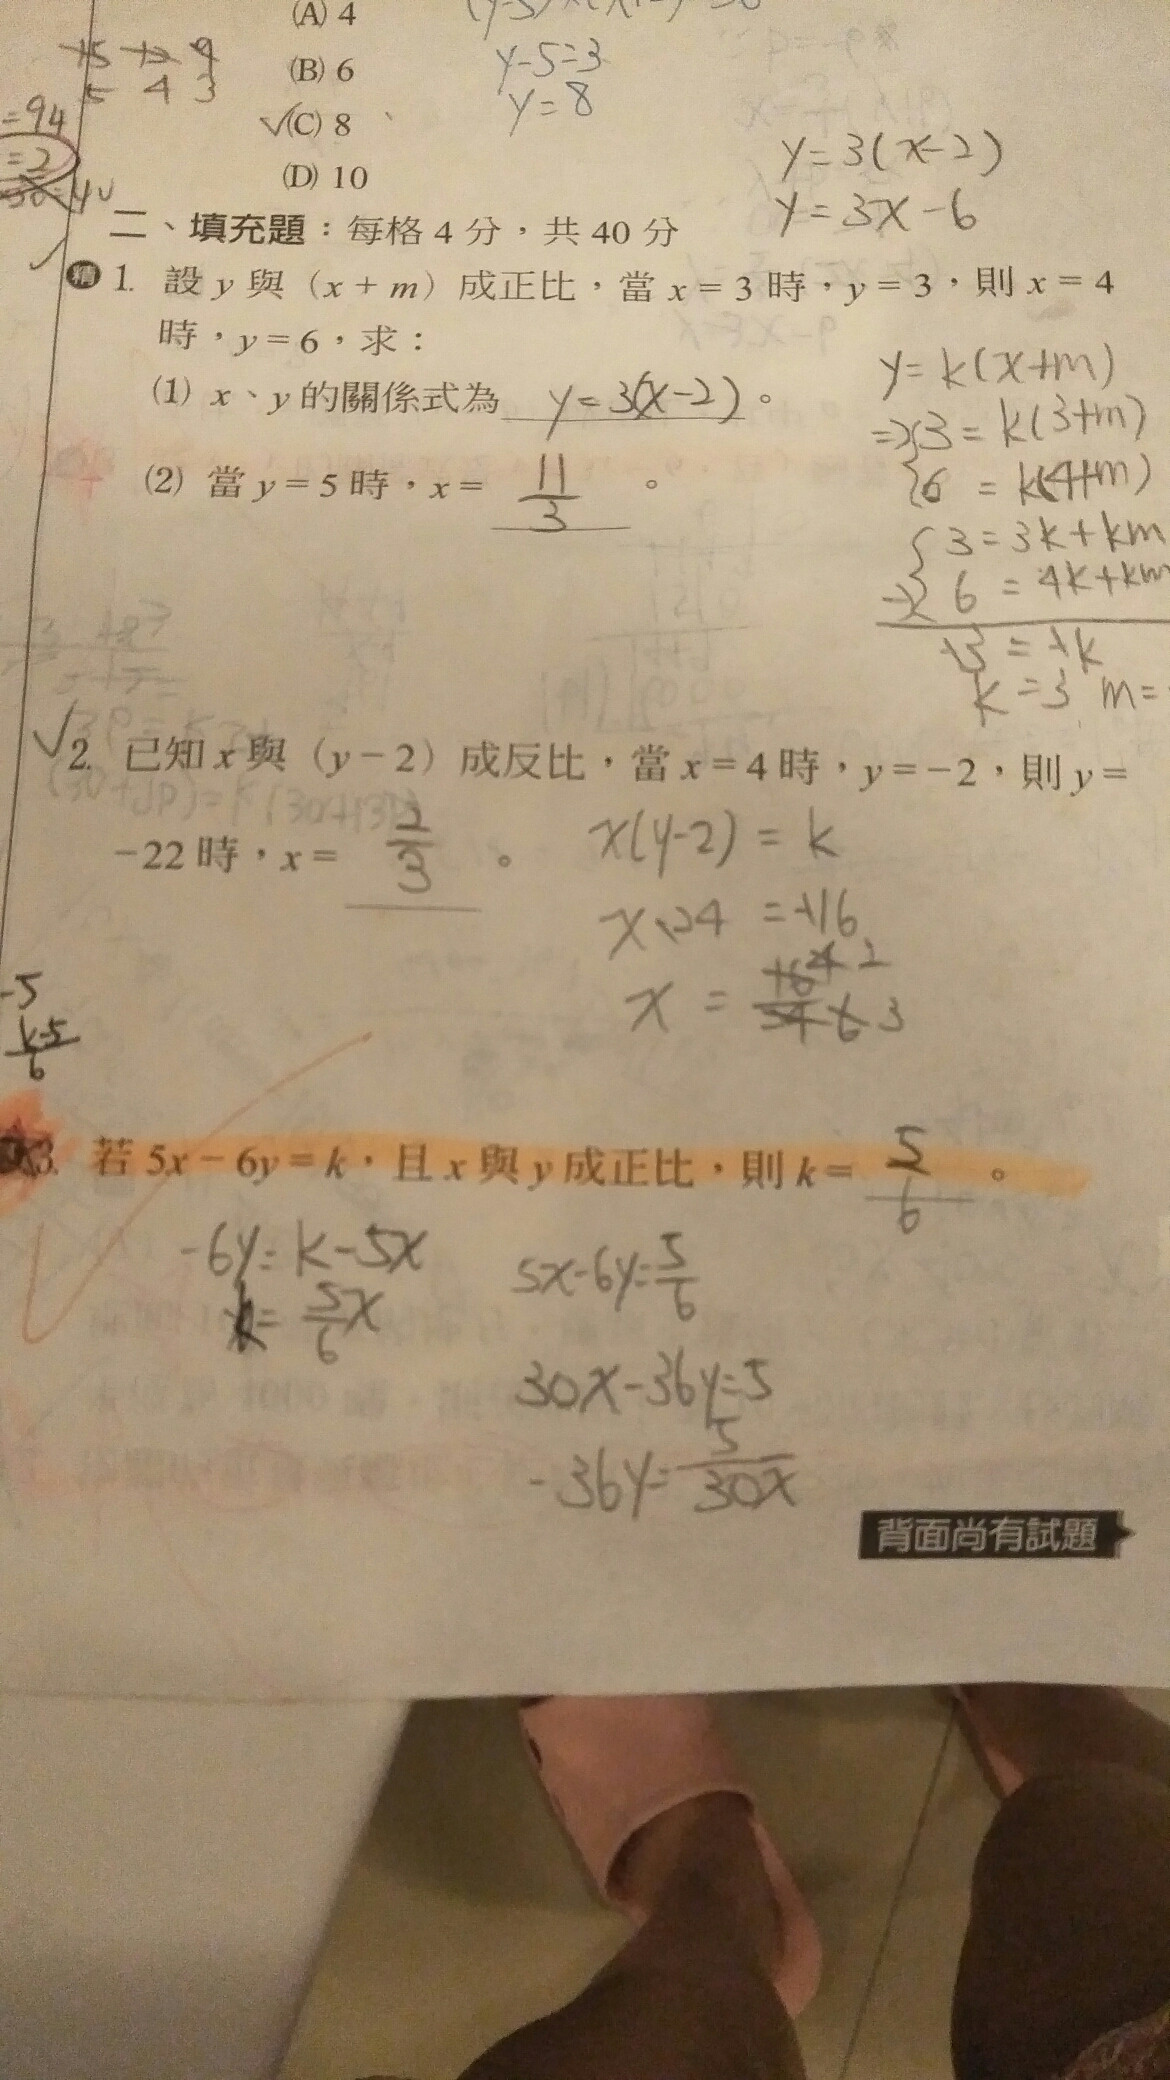 (A) 4
(B) 6
y-5=3
✓(C) 8
y=8
(D) 10
15 12 9
5 4 3
=94
=2
y=3(x-2)
y=3x-6
二、填充題：每格 4 分，共 40 分
精 1. 設 y 與（x + m）成正比，當 x = 3 時，y = 3，則 x = 4
時，y = 6，求：
(1) x、y 的關係式為 y=3(x-2) 。
(2) 當 y = 5 時，x = 11/3 。
y=k(x+m)
3=k(3+m)
6=k(4+m)
3=3k+km
6=4k+km
k=3 m=
✓2. 已知 x 與（y − 2）成反比，當 x = 4 時，y = −2，則 y =
−22 時，x = 2/3 。
x(y-2)=k
-5
k-5/6
3. 若 5x − 6y = k，且 x 與 y 成正比，則 k = 5/6 。
-6y=k-5x
= 5/6 x
5x-6y=5/6
30x-36y=5
-36y=5/30x
背面尚有試題